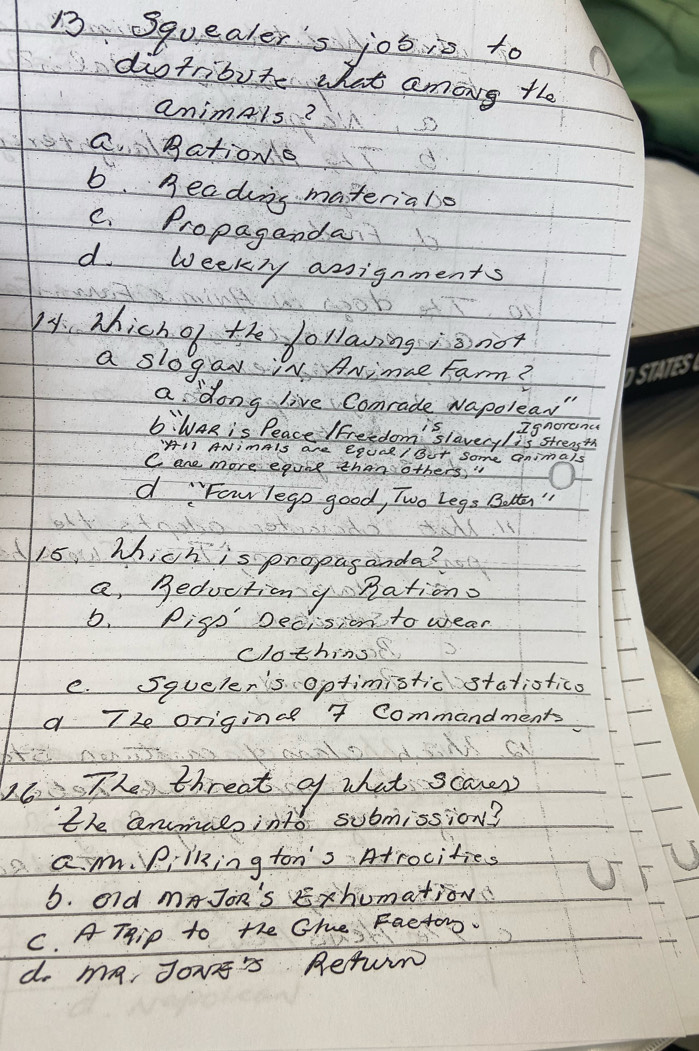 13 Squealer's job is to
distribute what among the
animals?
a. Rations
b. Reading materials
c. Propaganda
d. Weekly assignments
14. Which of the following is not
a slogan in Animal Farm?
a "Long live Comrade Napolean"
b. "WAR is Peace / Freedom is slavery / Ignorance is strength
"All ANiMALS are Equal / But some animals
c. are more equal than others."
d "Four legs good, Two Legs Better"
15. Which is propaganda?
a, Reduction of Rations
b. Pigs' Decision to wear
Clothing
c. Squeler's optimistic statistics
d The original 7 Commandments
16 The threat of what scares
the animals into submission?
a. M. Pilkington's Atrocities
b. Old MAJOR's Exhumation
c. A TRip to the Glue Factory.
d. MR. JONE'S Return
D STATES